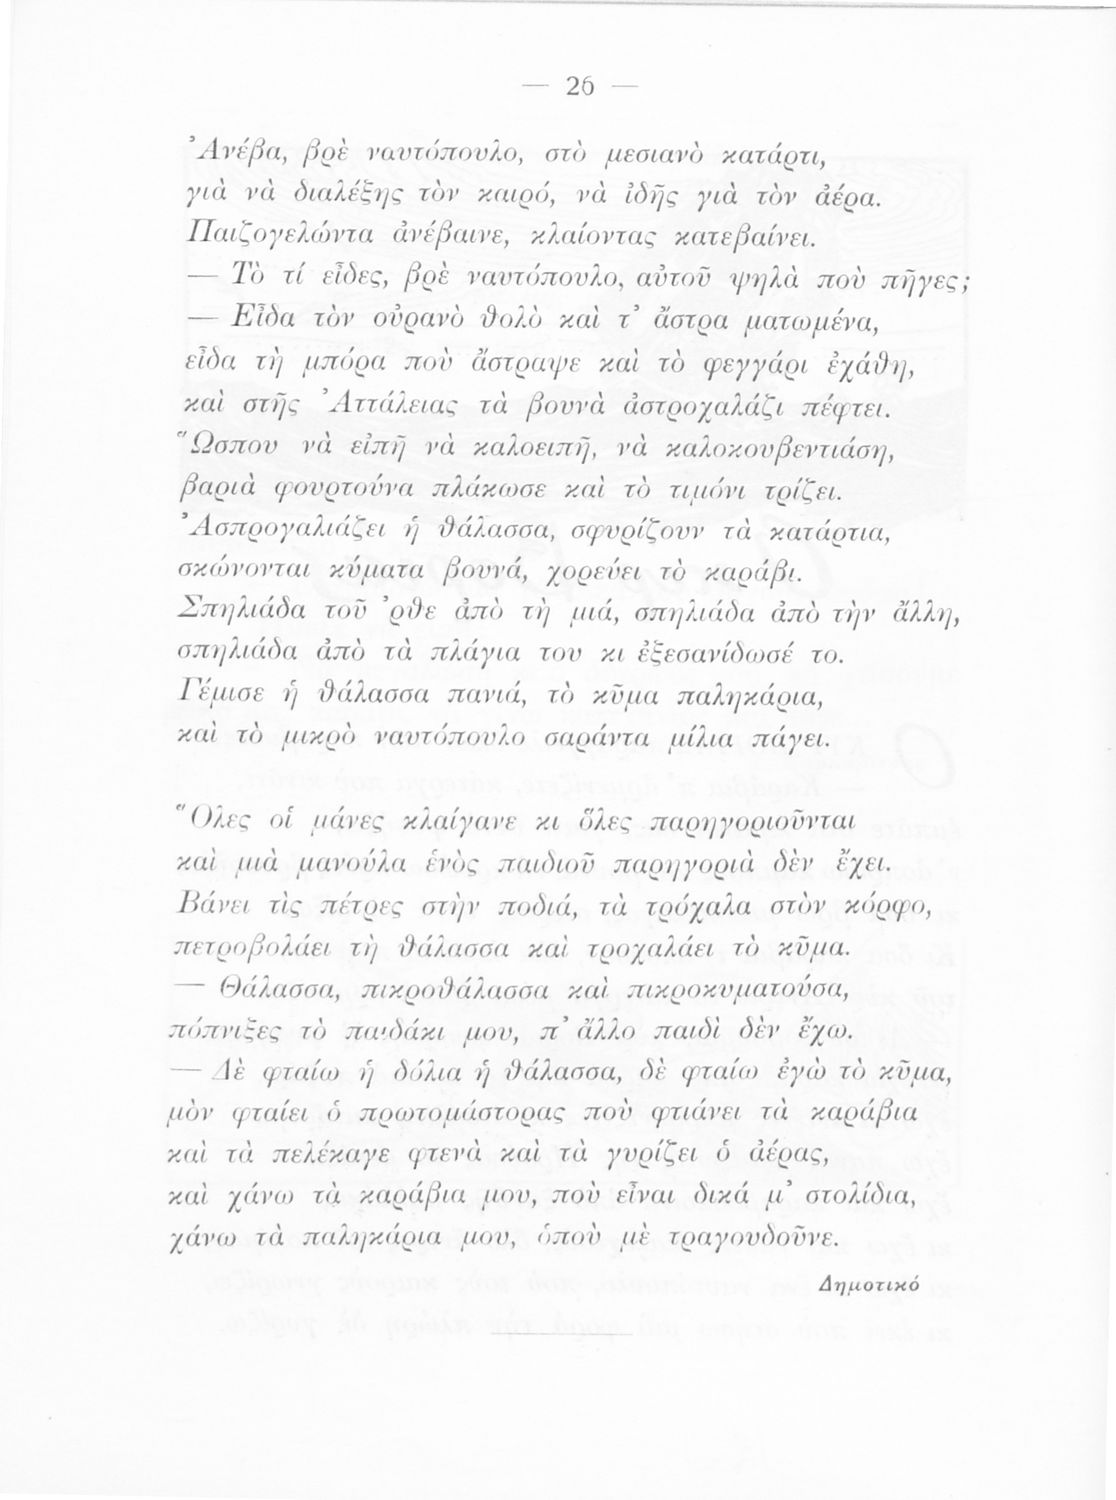 — 26 —
Ἀνέβα, βρὲ ναυτόπουλο, στὸ μεσιανὸ κατάρτι,
γιὰ νὰ διαλέξῃς τὸν καιρό, νὰ ἰδῆς γιὰ τὸν ἀέρα.
Παιζογελώντα ἀνέβαινε, κλαίοντας κατεβαίνει.
— Τὸ τί εἶδες, βρὲ ναυτόπουλο, αὐτοῦ ψηλὰ ποὺ πῆγες;
— Εἶδα τὸν οὐρανὸ θολὸ καὶ τ᾿ ἄστρα ματωμένα,
εἶδα τὴ μπόρα ποὺ ἄστραψε καὶ τὸ φεγγάρι ἐχάθη,
καὶ στῆς Ἀττάλειας τὰ βουνὰ ἀστροχαλάζι πέφτει.
Ὥσπου νὰ εἰπῆ νὰ καλοειπῆ, νὰ καλοκουβεντιάση,
βαριὰ φουρτούνα πλάκωσε καὶ τὸ τιμόνι τρίζει.
Ἀσπρογαλιάζει ἡ θάλασσα, σφυρίζουν τὰ κατάρτια,
σκώνονται κύματα βουνά, χορεύει τὸ καράβι.
Σπηλιάδα τοῦ ᾿ρθε ἀπὸ τὴ μιά, σπηλιάδα ἀπὸ τὴν ἄλλη,
σπηλιάδα ἀπὸ τὰ πλάγια του κι ἐξεσανίδωσέ το.
Γέμισε ἡ θάλασσα πανιά, τὸ κῦμα παληκάρια,
καὶ τὸ μικρὸ ναυτόπουλο σαράντα μίλια πάγει.
Ὅλες οἱ μάνες κλαίγανε κι ὅλες παρηγοριοῦνται
καὶ μιὰ μανούλα ἑνὸς παιδιοῦ παρηγοριὰ δὲν ἔχει.
Βάνει τὶς πέτρες στὴν ποδιά, τὰ τρόχαλα στὸν κόρφο,
πετροβολάει τὴ θάλασσα καὶ τροχαλάει τὸ κῦμα.
— Θάλασσα, πικροθάλασσα καὶ πικροκυματούσα,
πόπνιξες τὸ παιδάκι μου, π᾿ ἄλλο παιδὶ δὲν ἔχω.
— Δὲ φταίω ἡ δόλια ἡ θάλασσα, δὲ φταίω ἐγὼ τὸ κῦμα,
μὸν φταίει ὁ πρωτομάστορας ποὺ φτιάνει τὰ καράβια
καὶ τὰ πελέκαγε φτενὰ καὶ τὰ γυρίζει ὁ ἀέρας,
καὶ χάνω τὰ καράβια μου, ποὺ εἶναι δικά μ᾿ στολίδια,
χάνω τὰ παληκάρια μου, ὁποὺ μὲ τραγουδοῦνε.
Δημοτικό